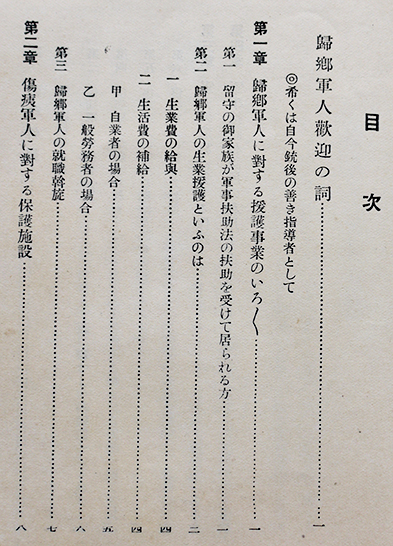 目次
歸鄕軍人歡迎の詞……一
◎希くは自今銃後の善き指導者として
第一章 歸鄕軍人に對する援護事業のいろ〱……一
第一 留守の御家族が軍事扶助法の扶助を受けて居られる方…一
第二 歸鄕軍人の生業援護といふのは……二
一 生業費の給與……四
二 生活費の補給……四
甲 自業者の場合……五
乙 一般勞務者の場合……六
第三 歸鄕軍人の就職斡旋……七
第二章 傷痍軍人に對する保護施設……八